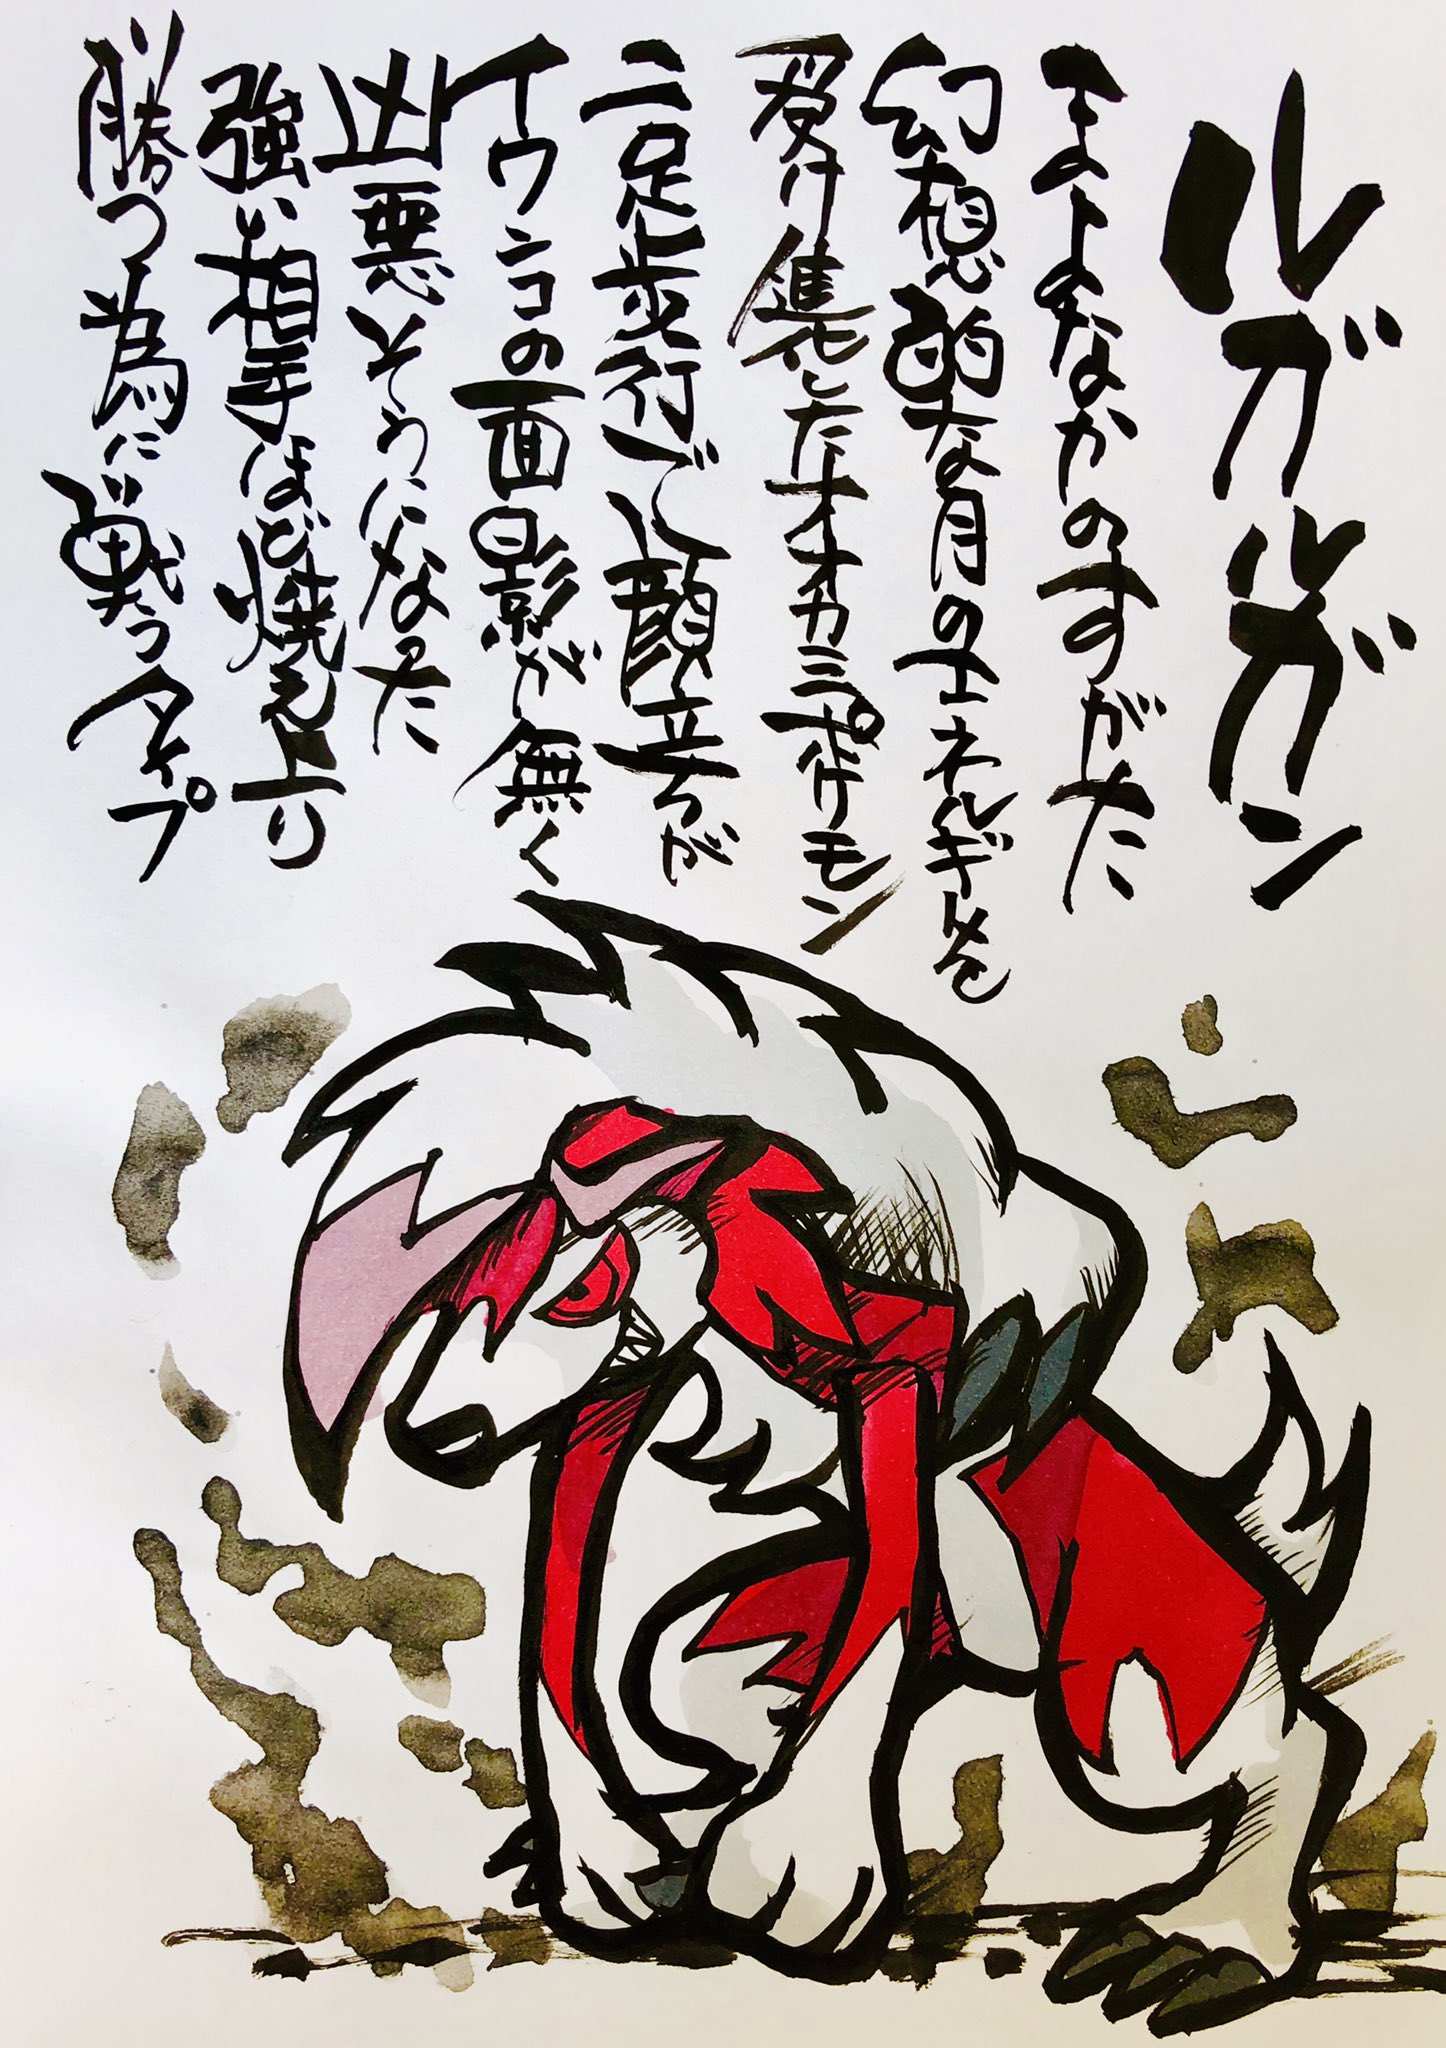 ルガルガン
まよなかのすがた
幻想的な月のエネルギーを
受け進化したオオカミポケモン
二足歩行で顔立ちが
イワンコの面影が無く
凶悪そうになった
強い相手ほど燃え上り
勝つ為に戦うタイプ